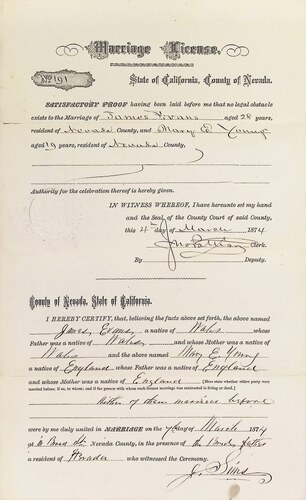 Marriage License.
No. 191
State of California, County of Nevada.
SATISFACTORY PROOF having been laid before me that no legal obstacle
exists to the Marriage of James Evans aged 28 years,
resident of Nevada County, and Mary E Young
aged 19 years, resident of Nevada County,
Authority for the celebration thereof is hereby given.
IN WITNESS WHEREOF, I have hereunto set my hand
and the Seal of the County Court of said County,
this 4th day of March 1874
Clerk.
By Deputy.
County of Nevada, State of California.
I HEREBY CERTIFY, that, believing the facts above set forth, the above named
James Evans, a native of Wales whose
Father was a native of Wales, and whose Mother was a Native of
Wales and the above named Mary E Young
a native of England whose Father was a native of England
and whose Mother was a native of England (Here state whether either party were
married before. If so, to whom; and if the person with whom such former marriage was contracted is living or dead.)
Neither of them married before
were by me duly united in MARRIAGE on the day of March 1874
at Nevada County, in the presence of the
a resident of Nevada who witnessed the Ceremony.
J. Sims